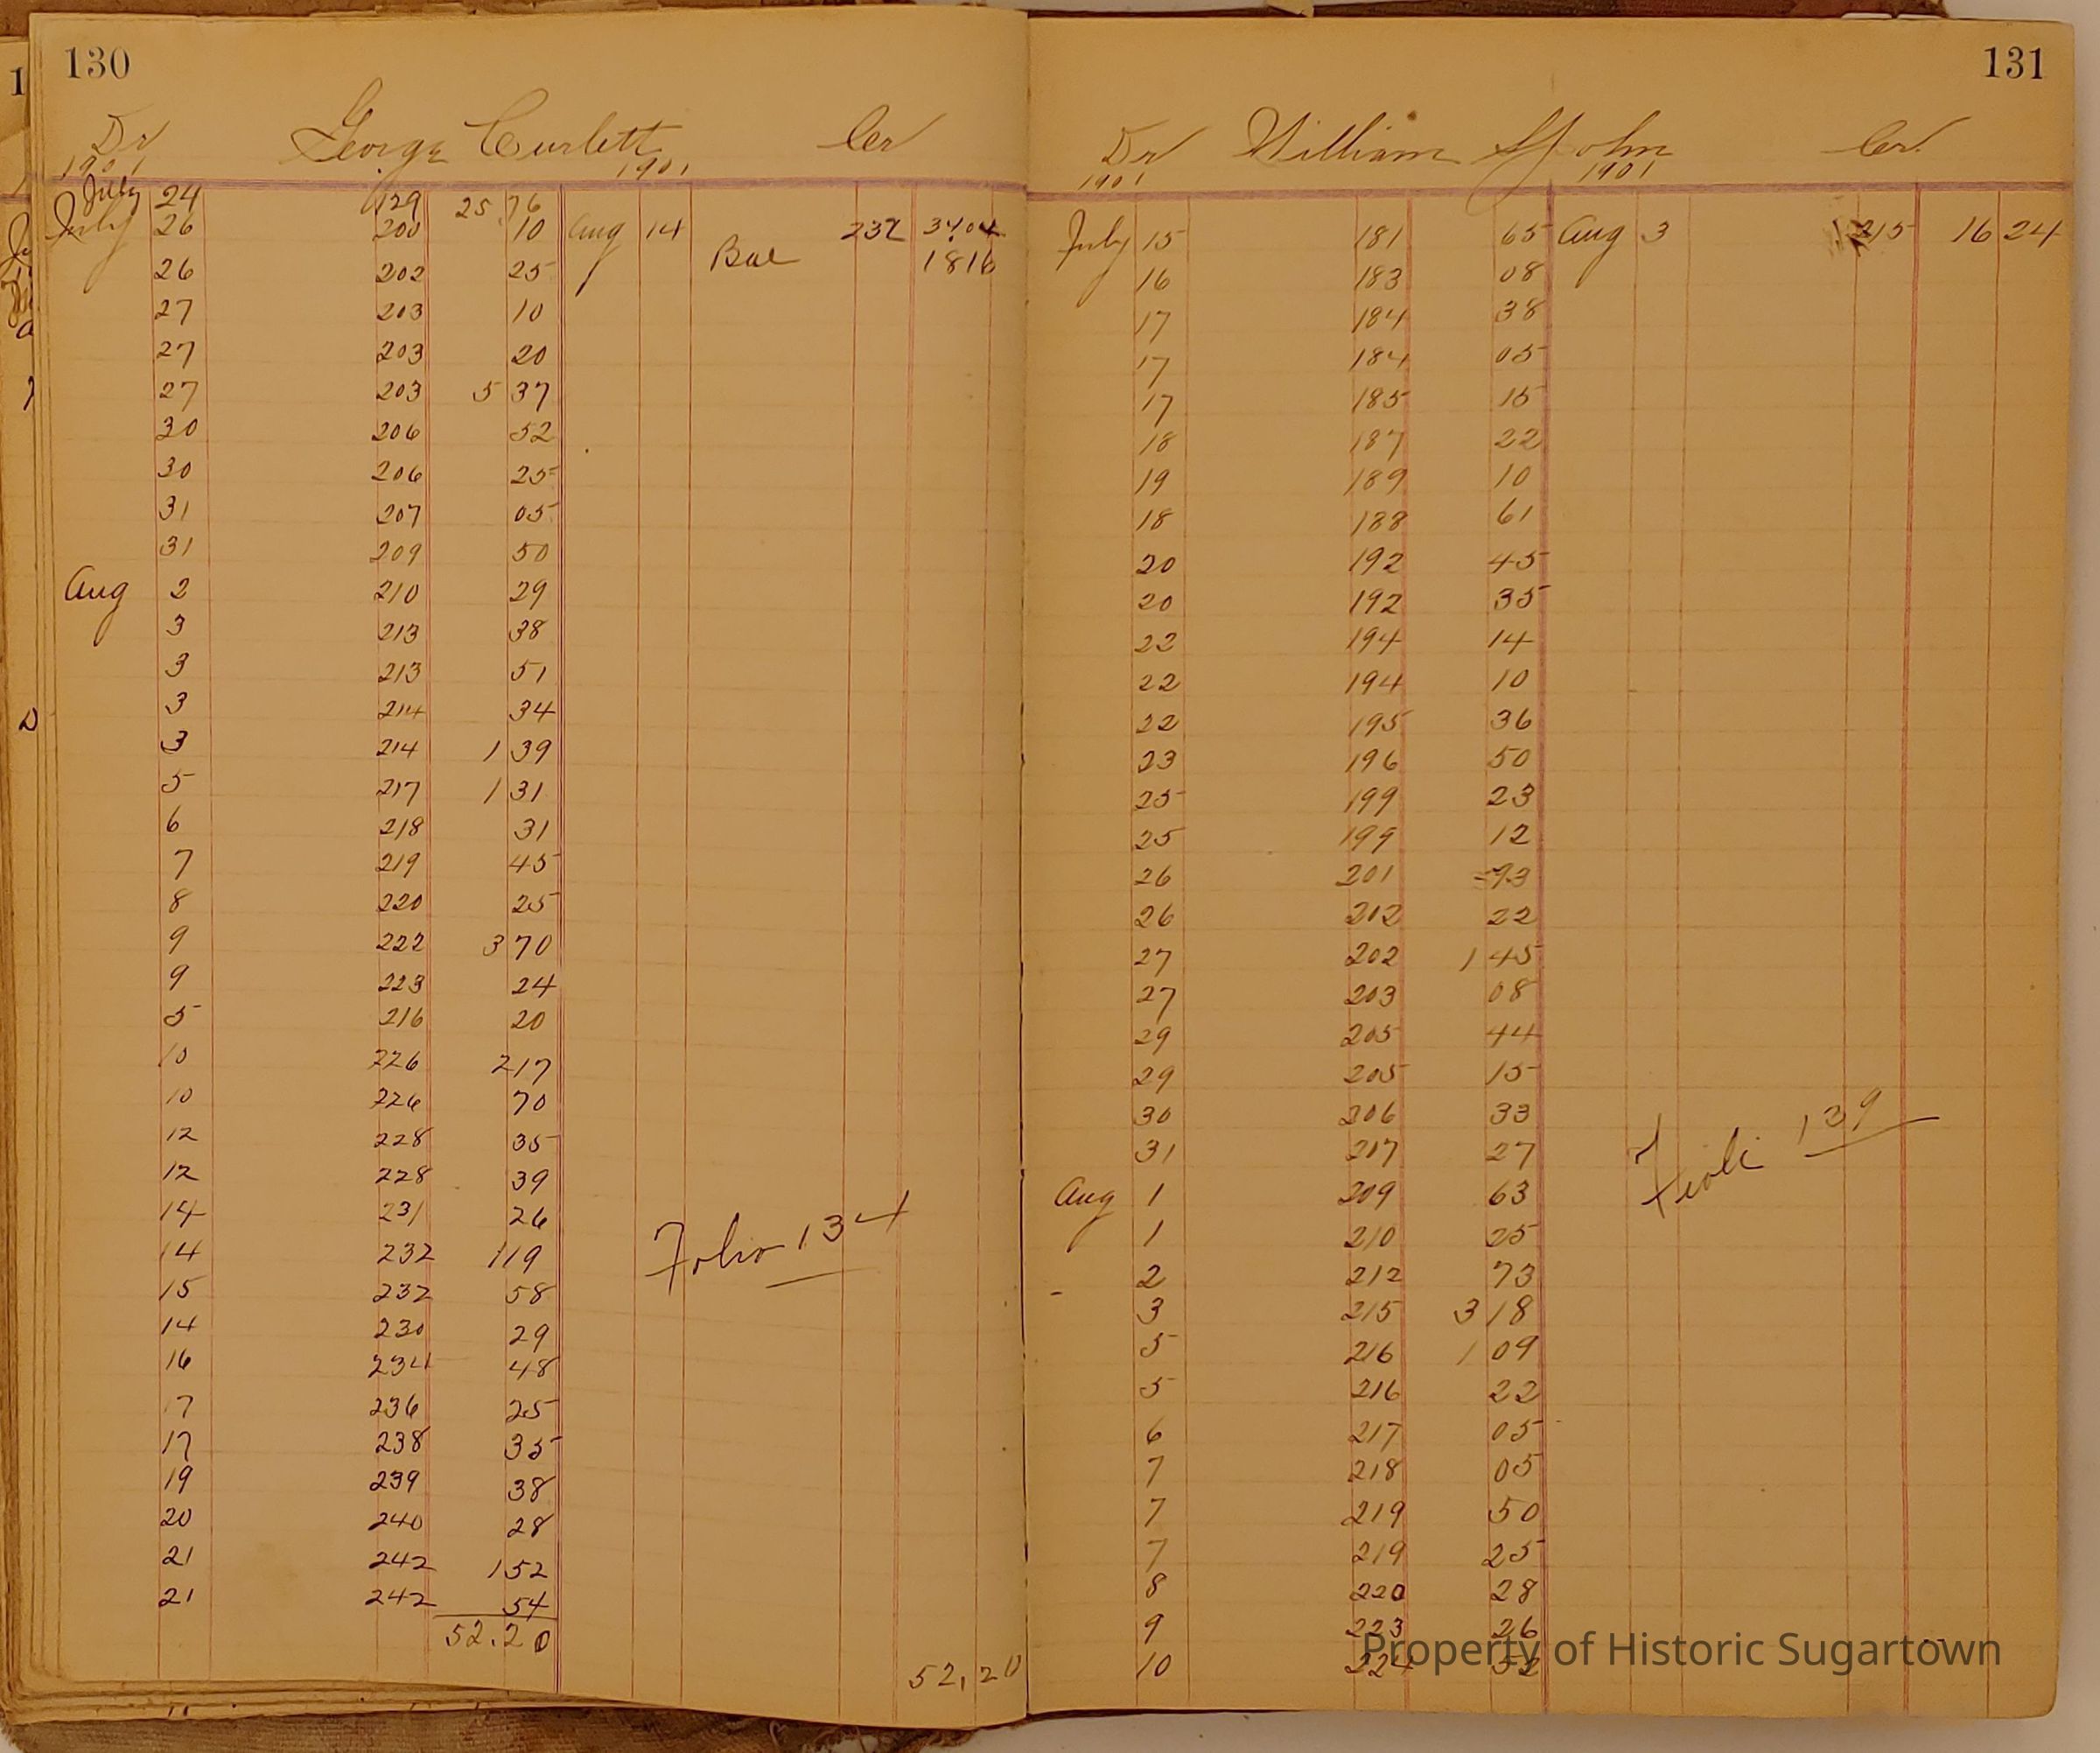 130
Dr George Curlett Cr
1901 1901
July 24 129 25 76
July 26 200 10 Aug 14 232 34.04
26 202 25 Bal 18 16
27 203 10
27 203 20
27 203 5 37
30 206 52
30 206 25
31 207 05
31 209 50
Aug 2 210 29
3 213 38
3 213 51
3 214 34
3 214 1 39
5 217 1 31
6 218 31
7 219 45
8 220 25
9 222 3 70
9 223 24
5 216 20
10 226 2 17
10 226 70
12 228 35
12 228 39
14 231 26
14 232 1 19 Folio 134
15 232 58
14 230 29
16 234 48
17 236 25
17 238 35
19 239 38
20 240 28
21 242 1 52
21 242 54
52.20
52.20
131
Dr William John Cr
1901 1901
July 15 181 65 Aug 3 215 16 24
16 183 08
17 184 38
17 184 05
17 185 15
18 187 22
19 189 10
18 188 61
20 192 45
20 192 35
22 194 14
22 194 10
22 195 36
23 196 50
25 199 23
25 199 12
26 201 93
26 212 22
27 202 1 45
27 203 08
29 205 44
29 205 15
30 206 33
31 217 27 139
Aug 1 209 63
1 210 25
2 212 73
3 215 3 18
5 216 1 09
5 216 22
6 217 05
7 218 05
7 219 50
7 219 25
8 220 28
9 223 26
10 224 52
Property of Historic Sugartown